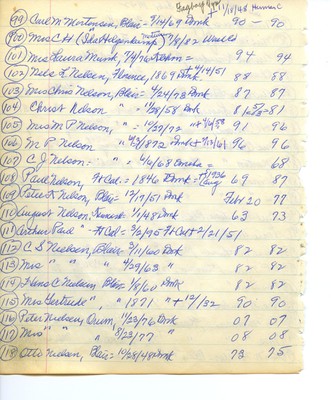 11/10/48 Human C
(99) Carl M Mortensen, Blair = 7/14/69 Dmk 90 - 90
(100) Mrs C H " (Ida Hilgenkamp) 7/8/82
(101) Mrs Laura Munk, 7/4/76 94 + 94
(102) Nels F. Nelson, Florence, 1869 Dmk + 4/14/51 88 88
(103) Mrs Chris Nelson, Blair = 4/24/73 Dmk 87 87
(104) Christ Nelson " 11/28/58 Dmk 81
(105) Mrs M P Nelson, " 10/27/72 91 96
(106) M P Nelson " 1872 Dmk + 96 96
(107) C J Nelson = " 4/6/68 Omaha = 68
(108) Paul Nelson, Ft Cal. = 1846 Dmk = 1936 Aug 69 87
(109) Peter K Nelson, Blair = 12/17/51 Dmk Feb 20 77
(110) August Nelson, 1/1/48 Dmk 63 73
(111) Arthur Paul " Ft Cal = 2/2/95 Ft Cal + 2/21/51
(112) C S Nielsen, Blair 3/11/60 Dmk 82 82
(113) Mrs " " 4/29/63 " 82 82
(114) Hans C Nielsen Blair 2/8/60 Dmk 82 82
(115) Mrs Gertrude " " 1871 " + 12/1/32 90 90
(116) Peter Nielsen, Orum, 11/23/76 Dmk 07 07
(117) Mrs " " 8/23/77 " 08 08
(118) Otto Nielsen, Blair = 10/28/48 Dmk 73 75